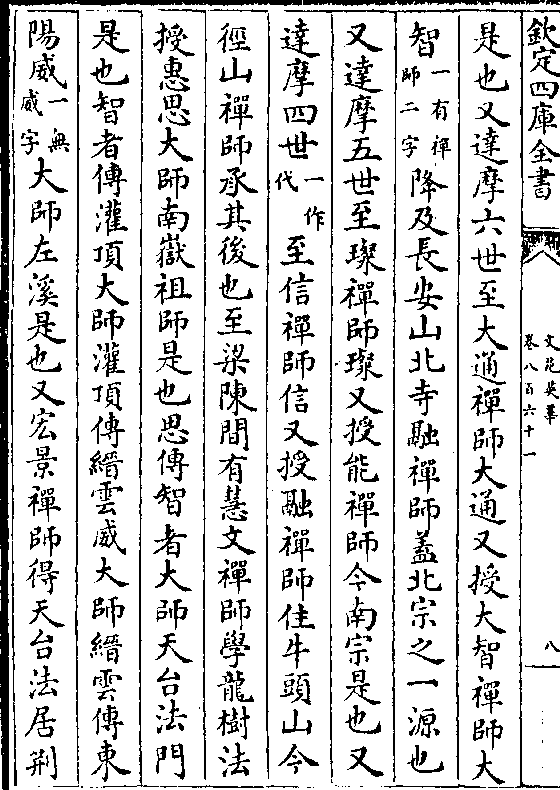 欽定四庫全書
文苑英華
卷八百六十一
八
是也又達摩六世至大通禪師大通又授大智禪師大
智一有禪師二字降及長安山北寺融禪師蓋北宗之一源也
又達摩五世至璨禪師璨又授能禪師今南宗是也又
達摩四世一作代至信禪師信又授融禪師住牛頭山今
徑山禪師承其後也至梁陳間有慧文禪師學龍樹法
授惠思大師南嶽祖師是也思傳智者大師天台法門
是也智者傳灌頂大師灌頂傳縉雲威大師縉雲傳東
陽威一無威字大師左溪是也又宏景禪師得天台法居荆